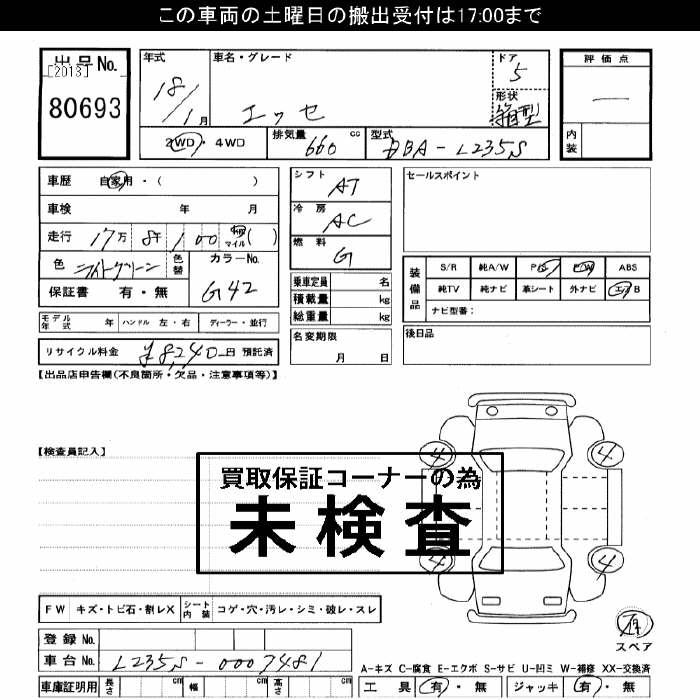 この車両の土曜日の搬出受付は17:00まで
出品No.
[2013]
80693
年式
18/1月
車名・グレード
エッセ
ドア
5
形状
箱型
評価点
—
内装
2WD・4WD
排気量 660 cc
型式 DBA-L235S
車歴 自家用・( )
車検 年 月
走行 17万8千100 km マイル ( )
色 ライトグリーン
色替
カラーNo.
G42
保証書 有・無
シフト
AT
冷房
AC
燃料
G
乗車定員 名
積載量 kg
総重量 kg
名変期限
月 日
セールスポイント
装備品
S/R 純A/W P/S P/W ABS
純TV 純ナビ 革シート 外ナビ エアB
ナビ型番:
後日品
モデル年式 年 ハンドル 左・右 ディーラー・並行
リサイクル料金 ¥8,240-円 預託済
【出品店申告欄(不良箇所・欠品・注意事項等)】
【検査員記入】
買取保証コーナーの為
未検査
4
4
4
4
FW キズ・トビ石・割レX シート内装 コゲ・穴・汚レ・シミ・破レ・スレ
登録No.
車台No. L235S-0007481
有
スペア
A-キズ C-腐食 E-エクボ S-サビ U-凹ミ W-補修 XX-交換済
車庫証明用 長さ cm 幅 cm 高さ cm
工具 有・無 ジャッキ 有・無